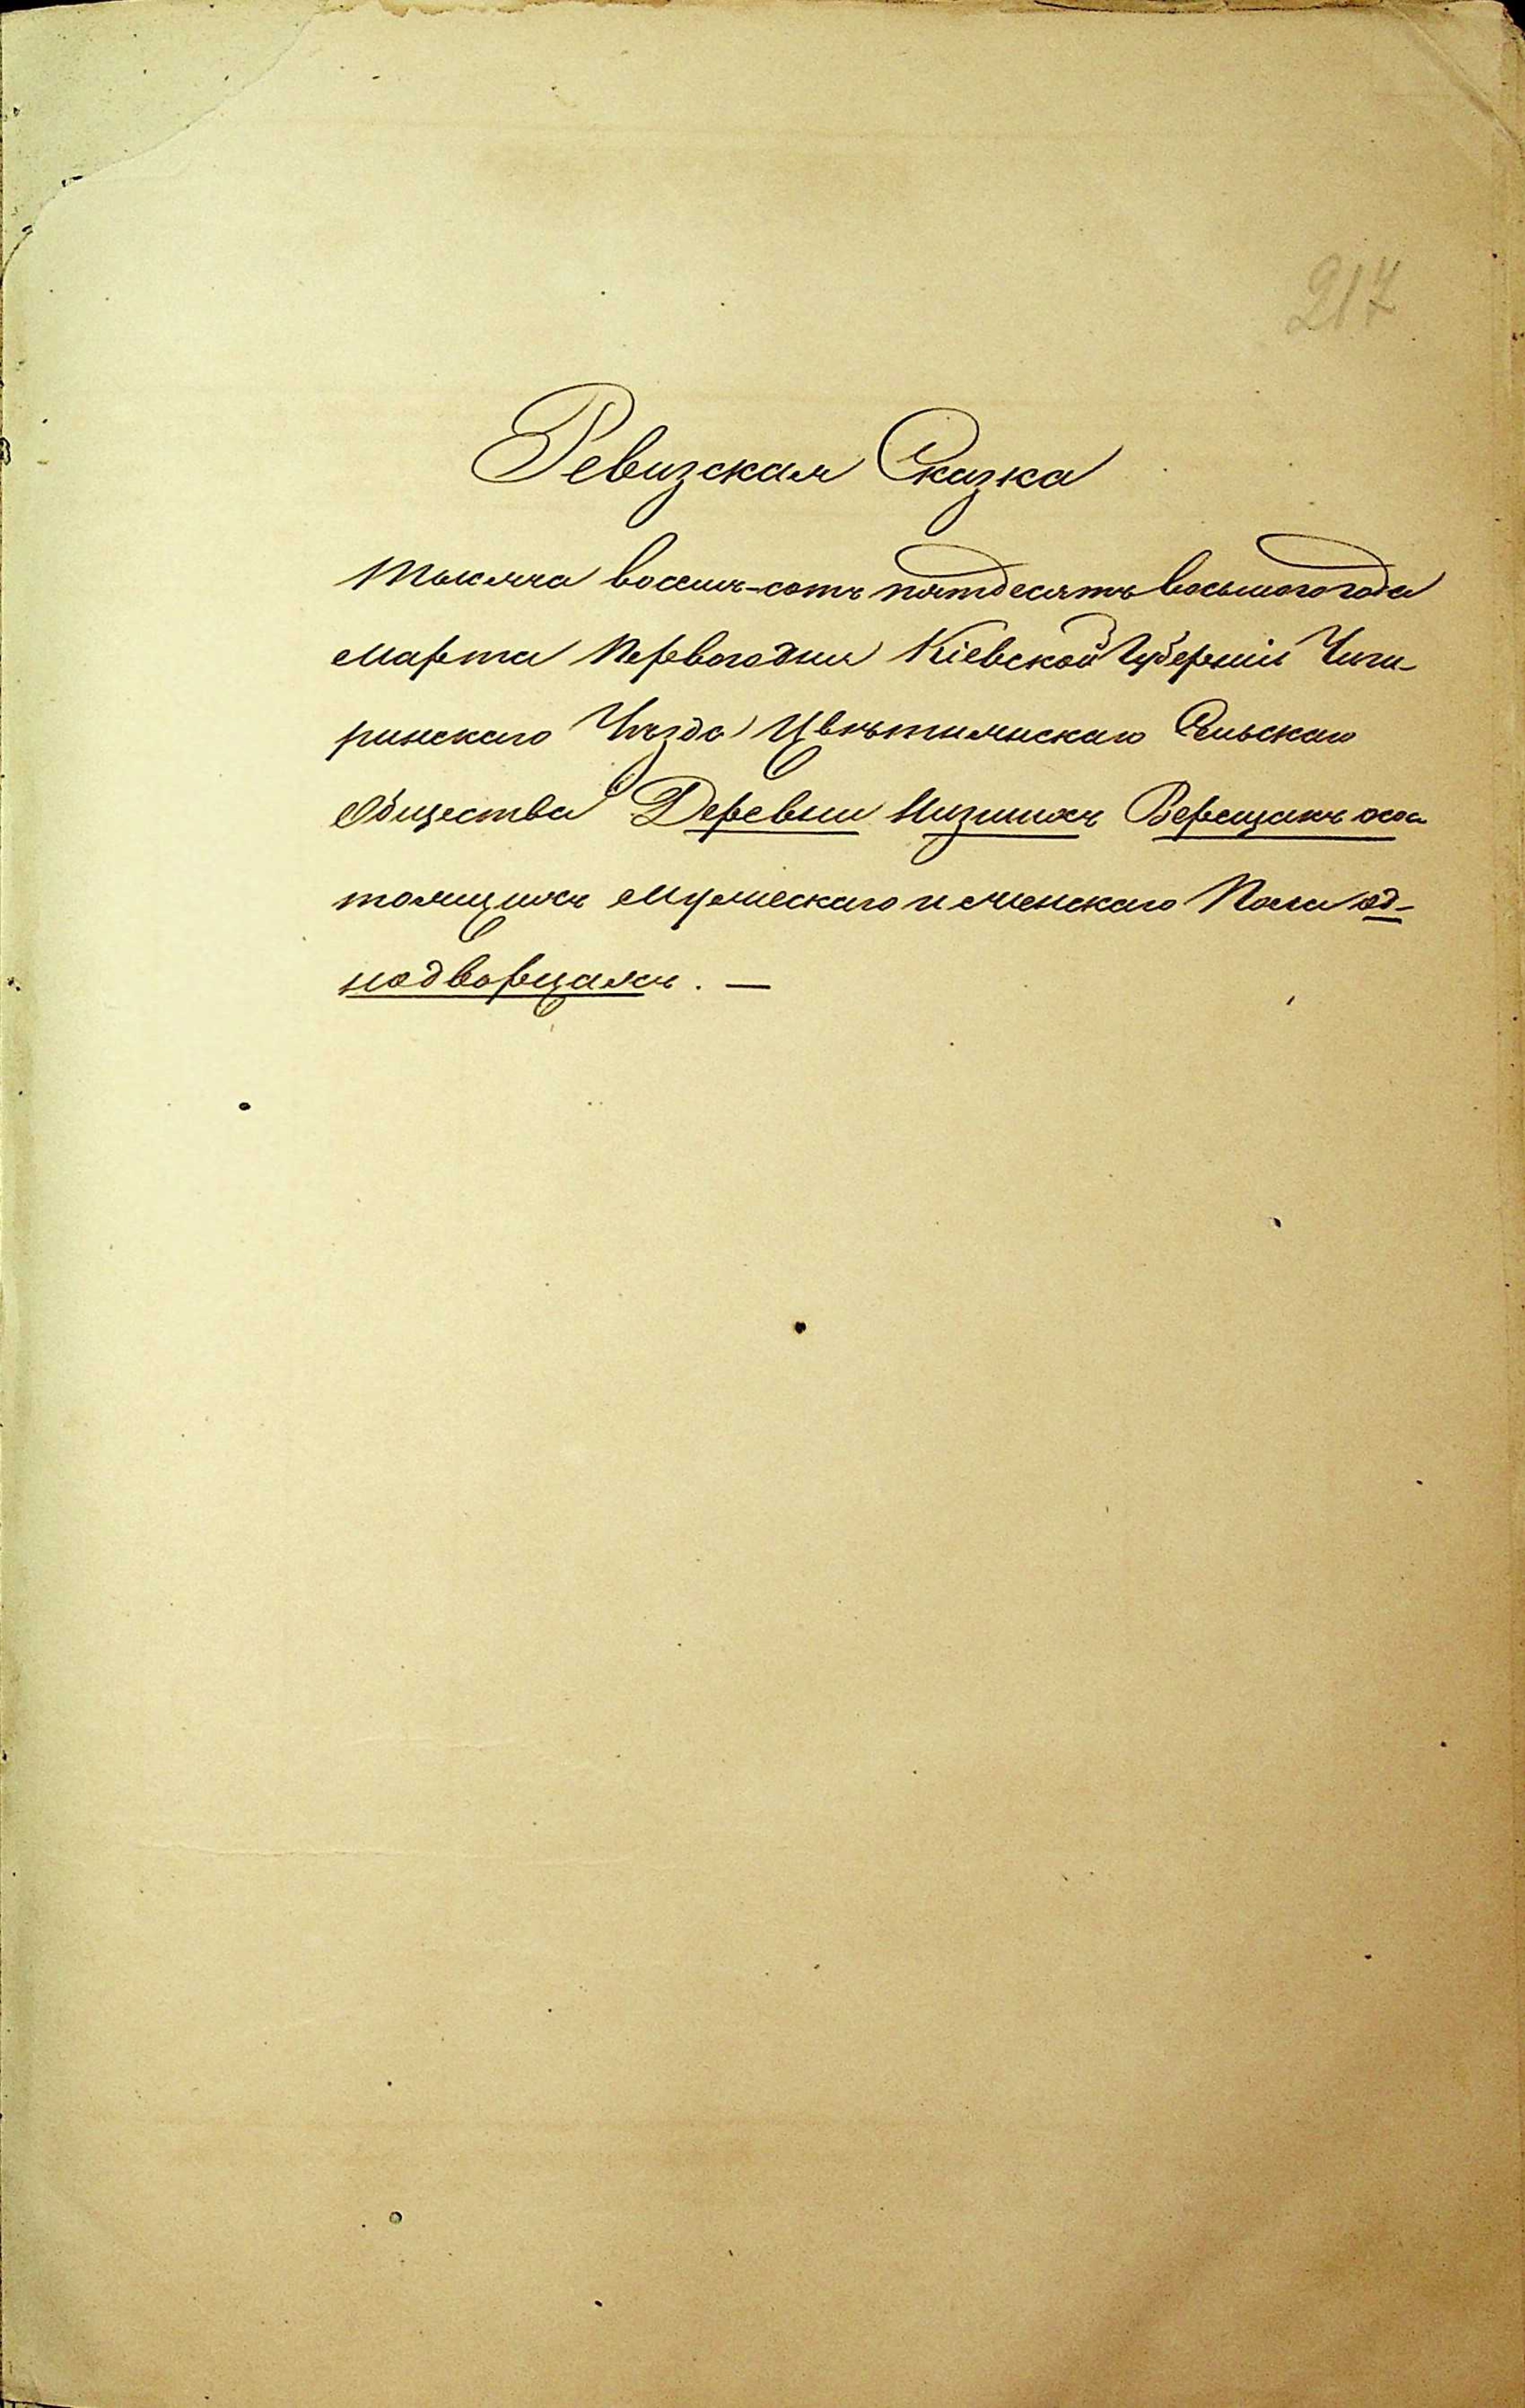 217
Ревизская Сказка
тысяча восемь-сотъ пятдесятъ восьмого года
марта перваго дня Кіевской Губерніи Чиги-
ринскаго Уѣзда Цвѣтнянскаго Сельскаго
Общества Деревни Низшихъ Верещакъ о сос-
тоящихъ мужескаго и женскаго пола од-
нодворцахъ. —